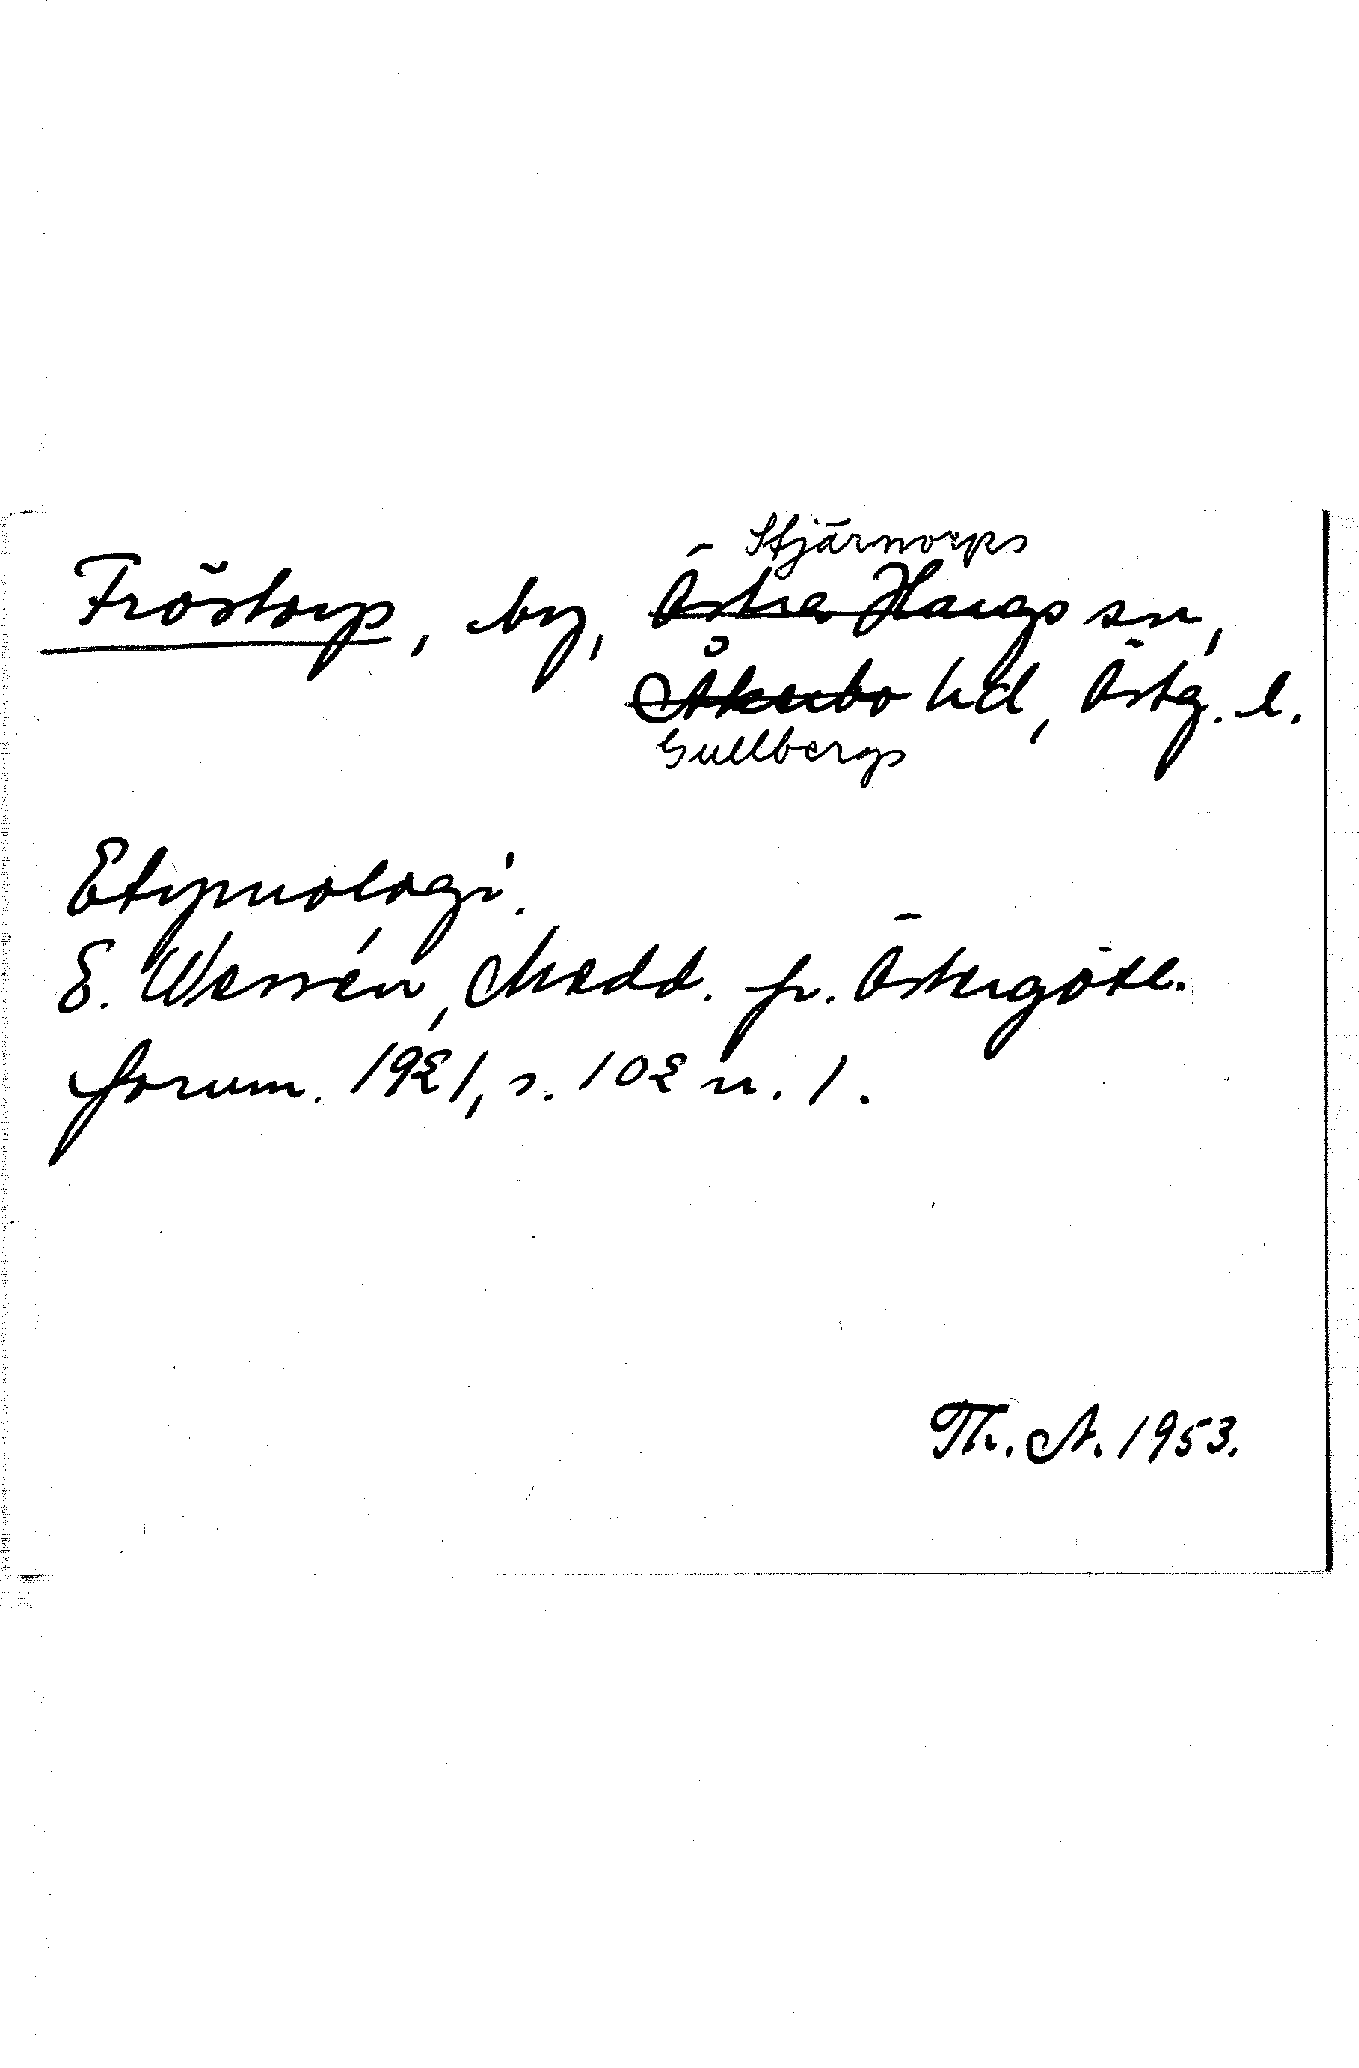 Stjärnorps
Fröstorp, by, Östra Hargs sn,
Åkerbo hd, Östg. l.
Gullbergs
Etymologi.
E. Wessén, Medd. fr. Östergötl.
fornm. 1921, s. 102 n. 1.
Th. A. 1953.